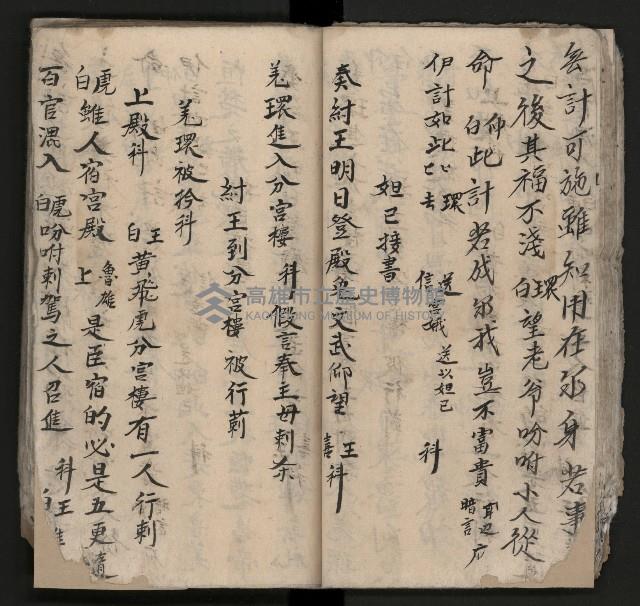 無計可施雖知用在尔身若事
之後其福不淺 環白 望老爺吩咐小人從
命 仰白 此計若成尔我豈不富貴 耳邊暗言 应
伊計如此匕匕去 環送信宮娥 送以妲己 科
妲己接書
奏紂王明日登殿 文武仰望 王喜科
羌環進入分宮樓 科 假言奉主母刺杀
紂王到分宮樓 被行刺
羌環被拎科
上殿科 王白 黃飛虎分宮樓有一人行刺
虎白 雖人宿宮殿 上 魯雄 是臣宿的 必是五更
百官混入 虎白 吩咐刺駕之人召進 科 王白
高雄市立歷史博物館
KAOHSIUNG MUSEUM OF HISTORY